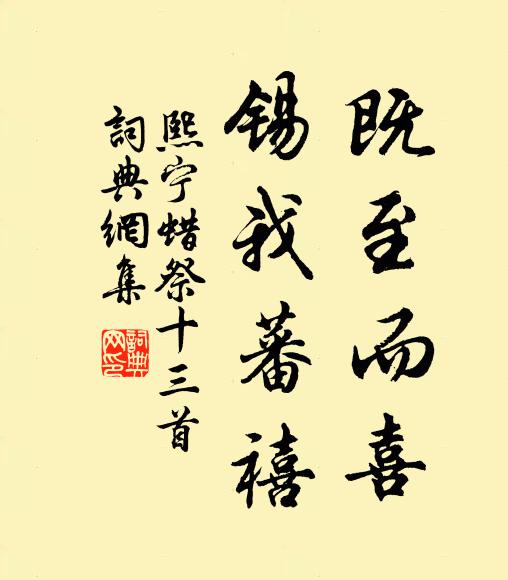 既至而喜
锡我蕃禧
熙宁蜡祭十三首
詞典網集
詞典
网印